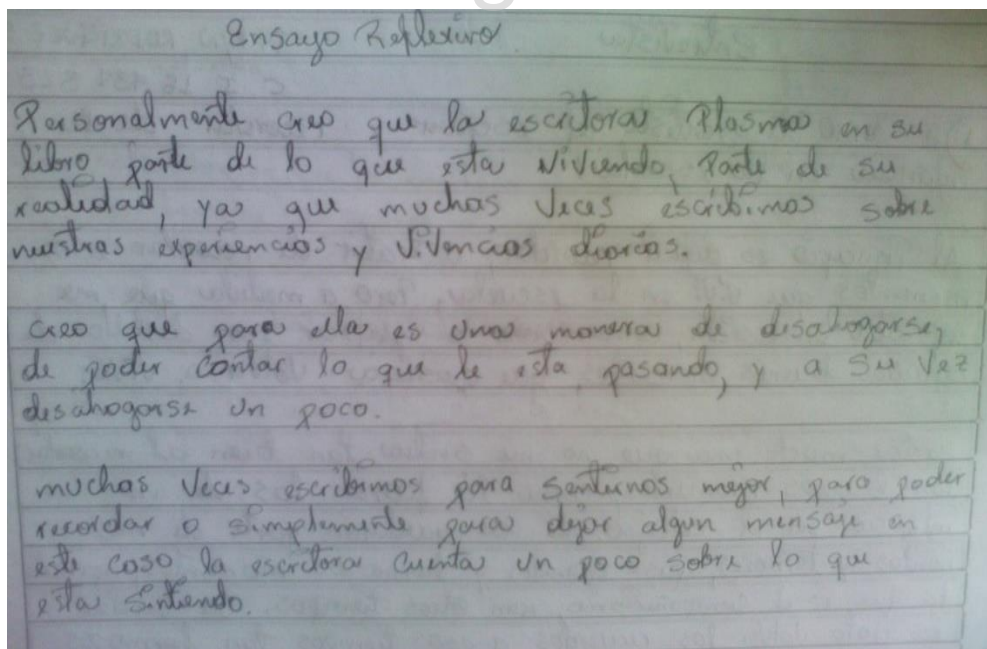 Ensayo Reflexivo
Personalmente creo que la escritora Plasma en su
libro, parte de lo que esta viviendo, Parte de su
realidad, ya que muchas veces escribimos sobre
nuestras experiencias y vivencias diarias.
creo que para ella es una manera de desahogarse,
de poder contar lo que le esta pasando, y a su vez
desahogarse un poco.
muchas veces escribimos para sentirnos mejor, para poder
recordar o simplemente para dejar algun mensaje en
este caso la escritora cuenta un poco sobre lo que
esta sintiendo.